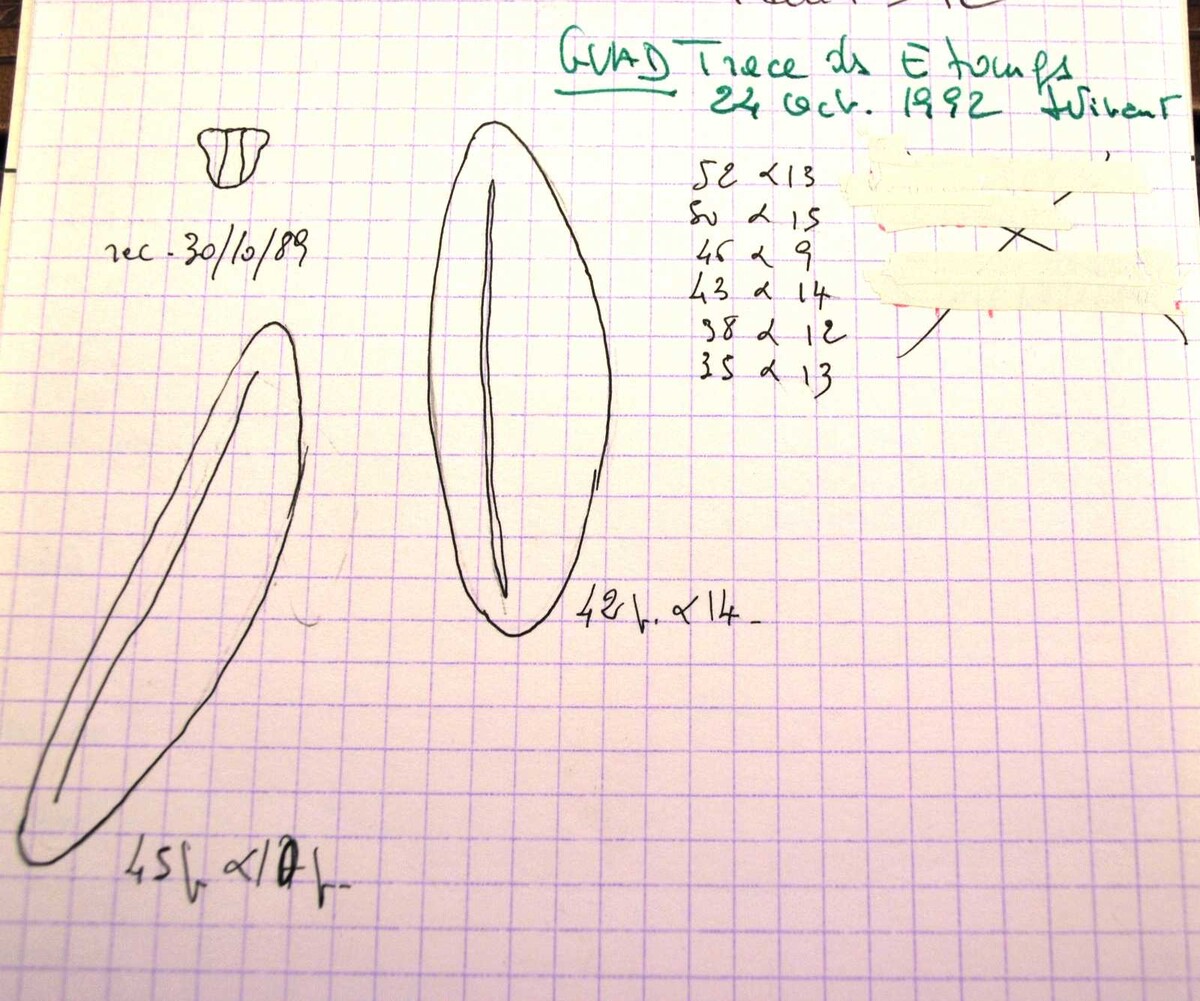 GUAD Trace ds Etangs
24 oct. 1992
rec. 30/10/89
52 α 13
50 α 15
46 α 9
43 α 14
38 α 12
35 α 13
42 μ. α 14 -
45 μ α 10 μ-